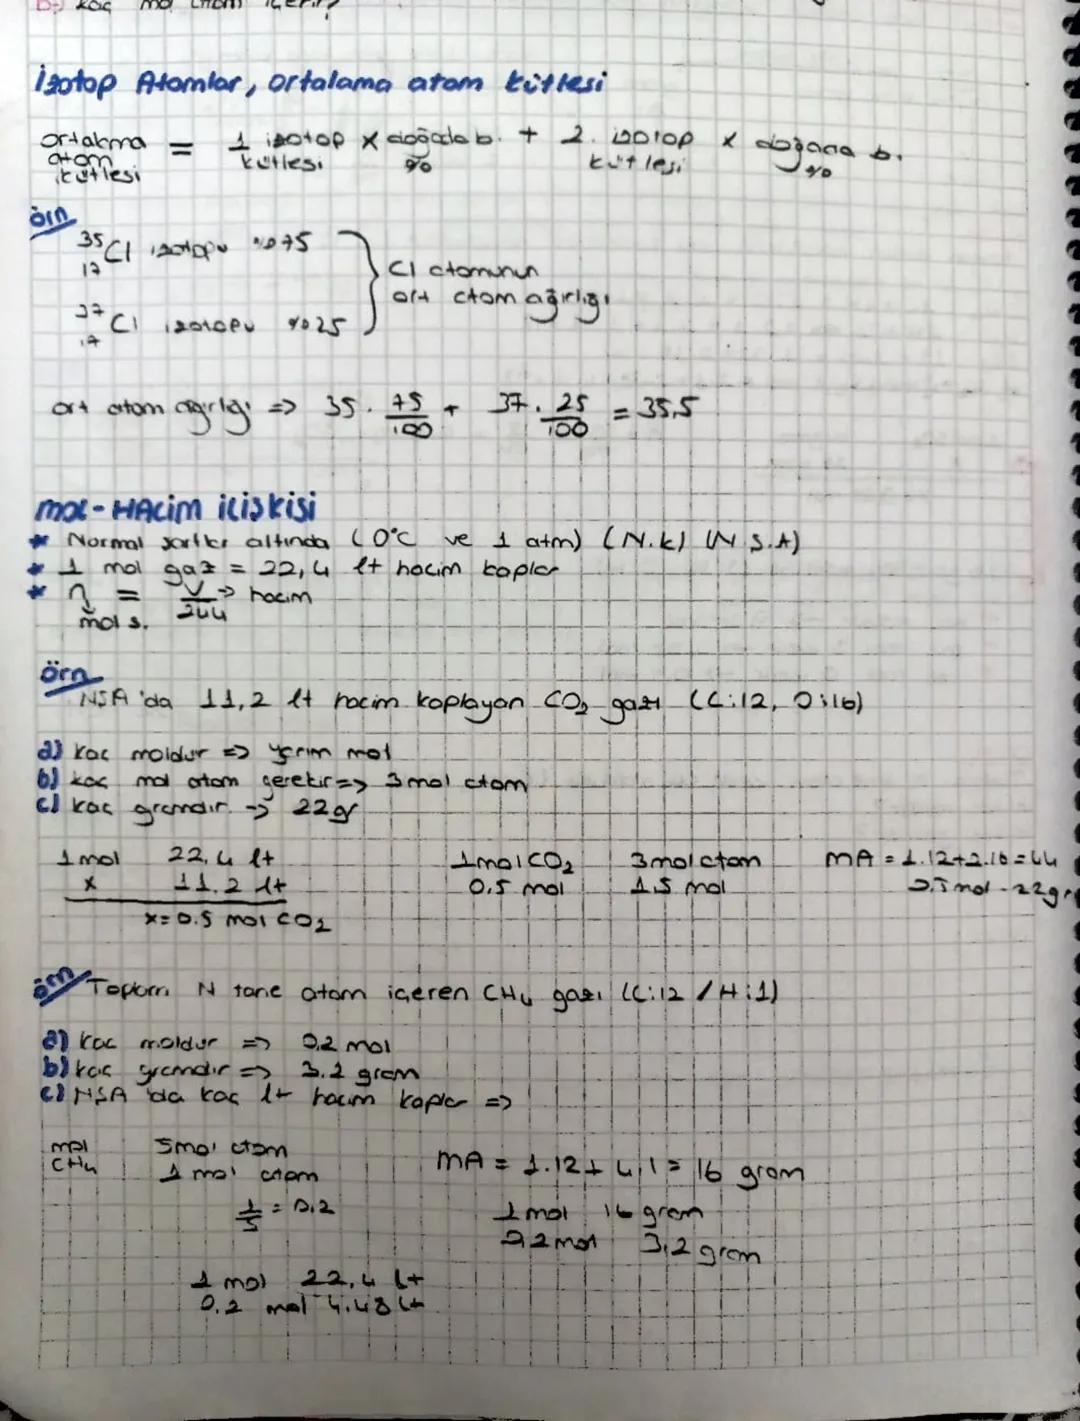 b) kaç mol atom içerir?
İzotop Atomlar, ortalama atom kütlesi
ortalama atom kütlesi = 1 izotop kütlesi x doğada b. % + 2. izotop kütlesi x doğada b. %
örn
35 17 Cl izotopu %75
Cl atomunun
ort atom ağırlığı
37 17 Cl izotopu %25
ort atom ağırlığı => 35 . 75/100 + 37 . 25/100 = 35,5
mol-HAcim ilişkisi
* Normal şartlar altında (0°C ve 1 atm) (N.k) (N.Ş.A)
* 1 mol gaz = 22,4 lt hacim kaplar
* n = V -> hacim
mol s. 244
örn
NŞA'da 11,2 lt hacim kaplayan CO2 gazı (C:12, O:16)
a) kaç moldür => yarım mol
b) kaç mol atom gerekir => 3 mol atom
c) kaç gramdır -> 22 gr
1 mol 22,4 lt 1 mol CO2 3 mol atom MA = 1.12+2.16=44
x 11.2 lt 0,5 mol 1,5 mol 0.5 mol - 22gr
x = 0.5 mol CO2
örn Toplam N tane atom içeren CH4 gazı (C:12 / H:1)
a) kaç moldur => 0,2 mol
b) kaç gramdır => 3.2 gram
c) NŞA'da kaç lt hacim kaplar =>
mol CH4 5 mol atom MA = 1.12+4.1 = 16 gram
1 mol atom
1/5 = 0,2 1 mol 16 gram
0,2 mol 3,2 gram
1 mol 22,4 lt
0.2 mol 4.48 lt